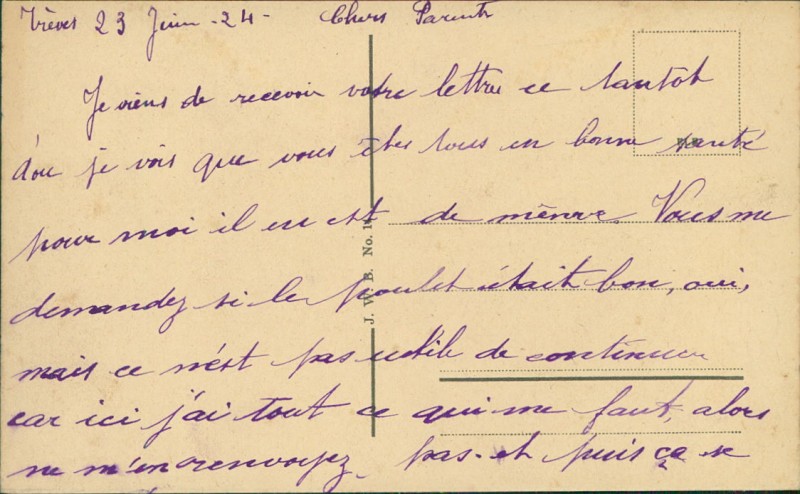 Trèves 23 Juin - 24 - Chers Parents
Je viens de recevoir votre lettre ce tantôt
d'ou je vois que vous êtes tous en bonne santé
pour moi il en est de même. Vous me
demandez si le poulet était bon, oui,
mais ce n'est pas utile de continuer
car ici j'ai tout ce qui me faut, alors
ne m'en renvoyez pas - et puis ça se
J. W. B. No. 1